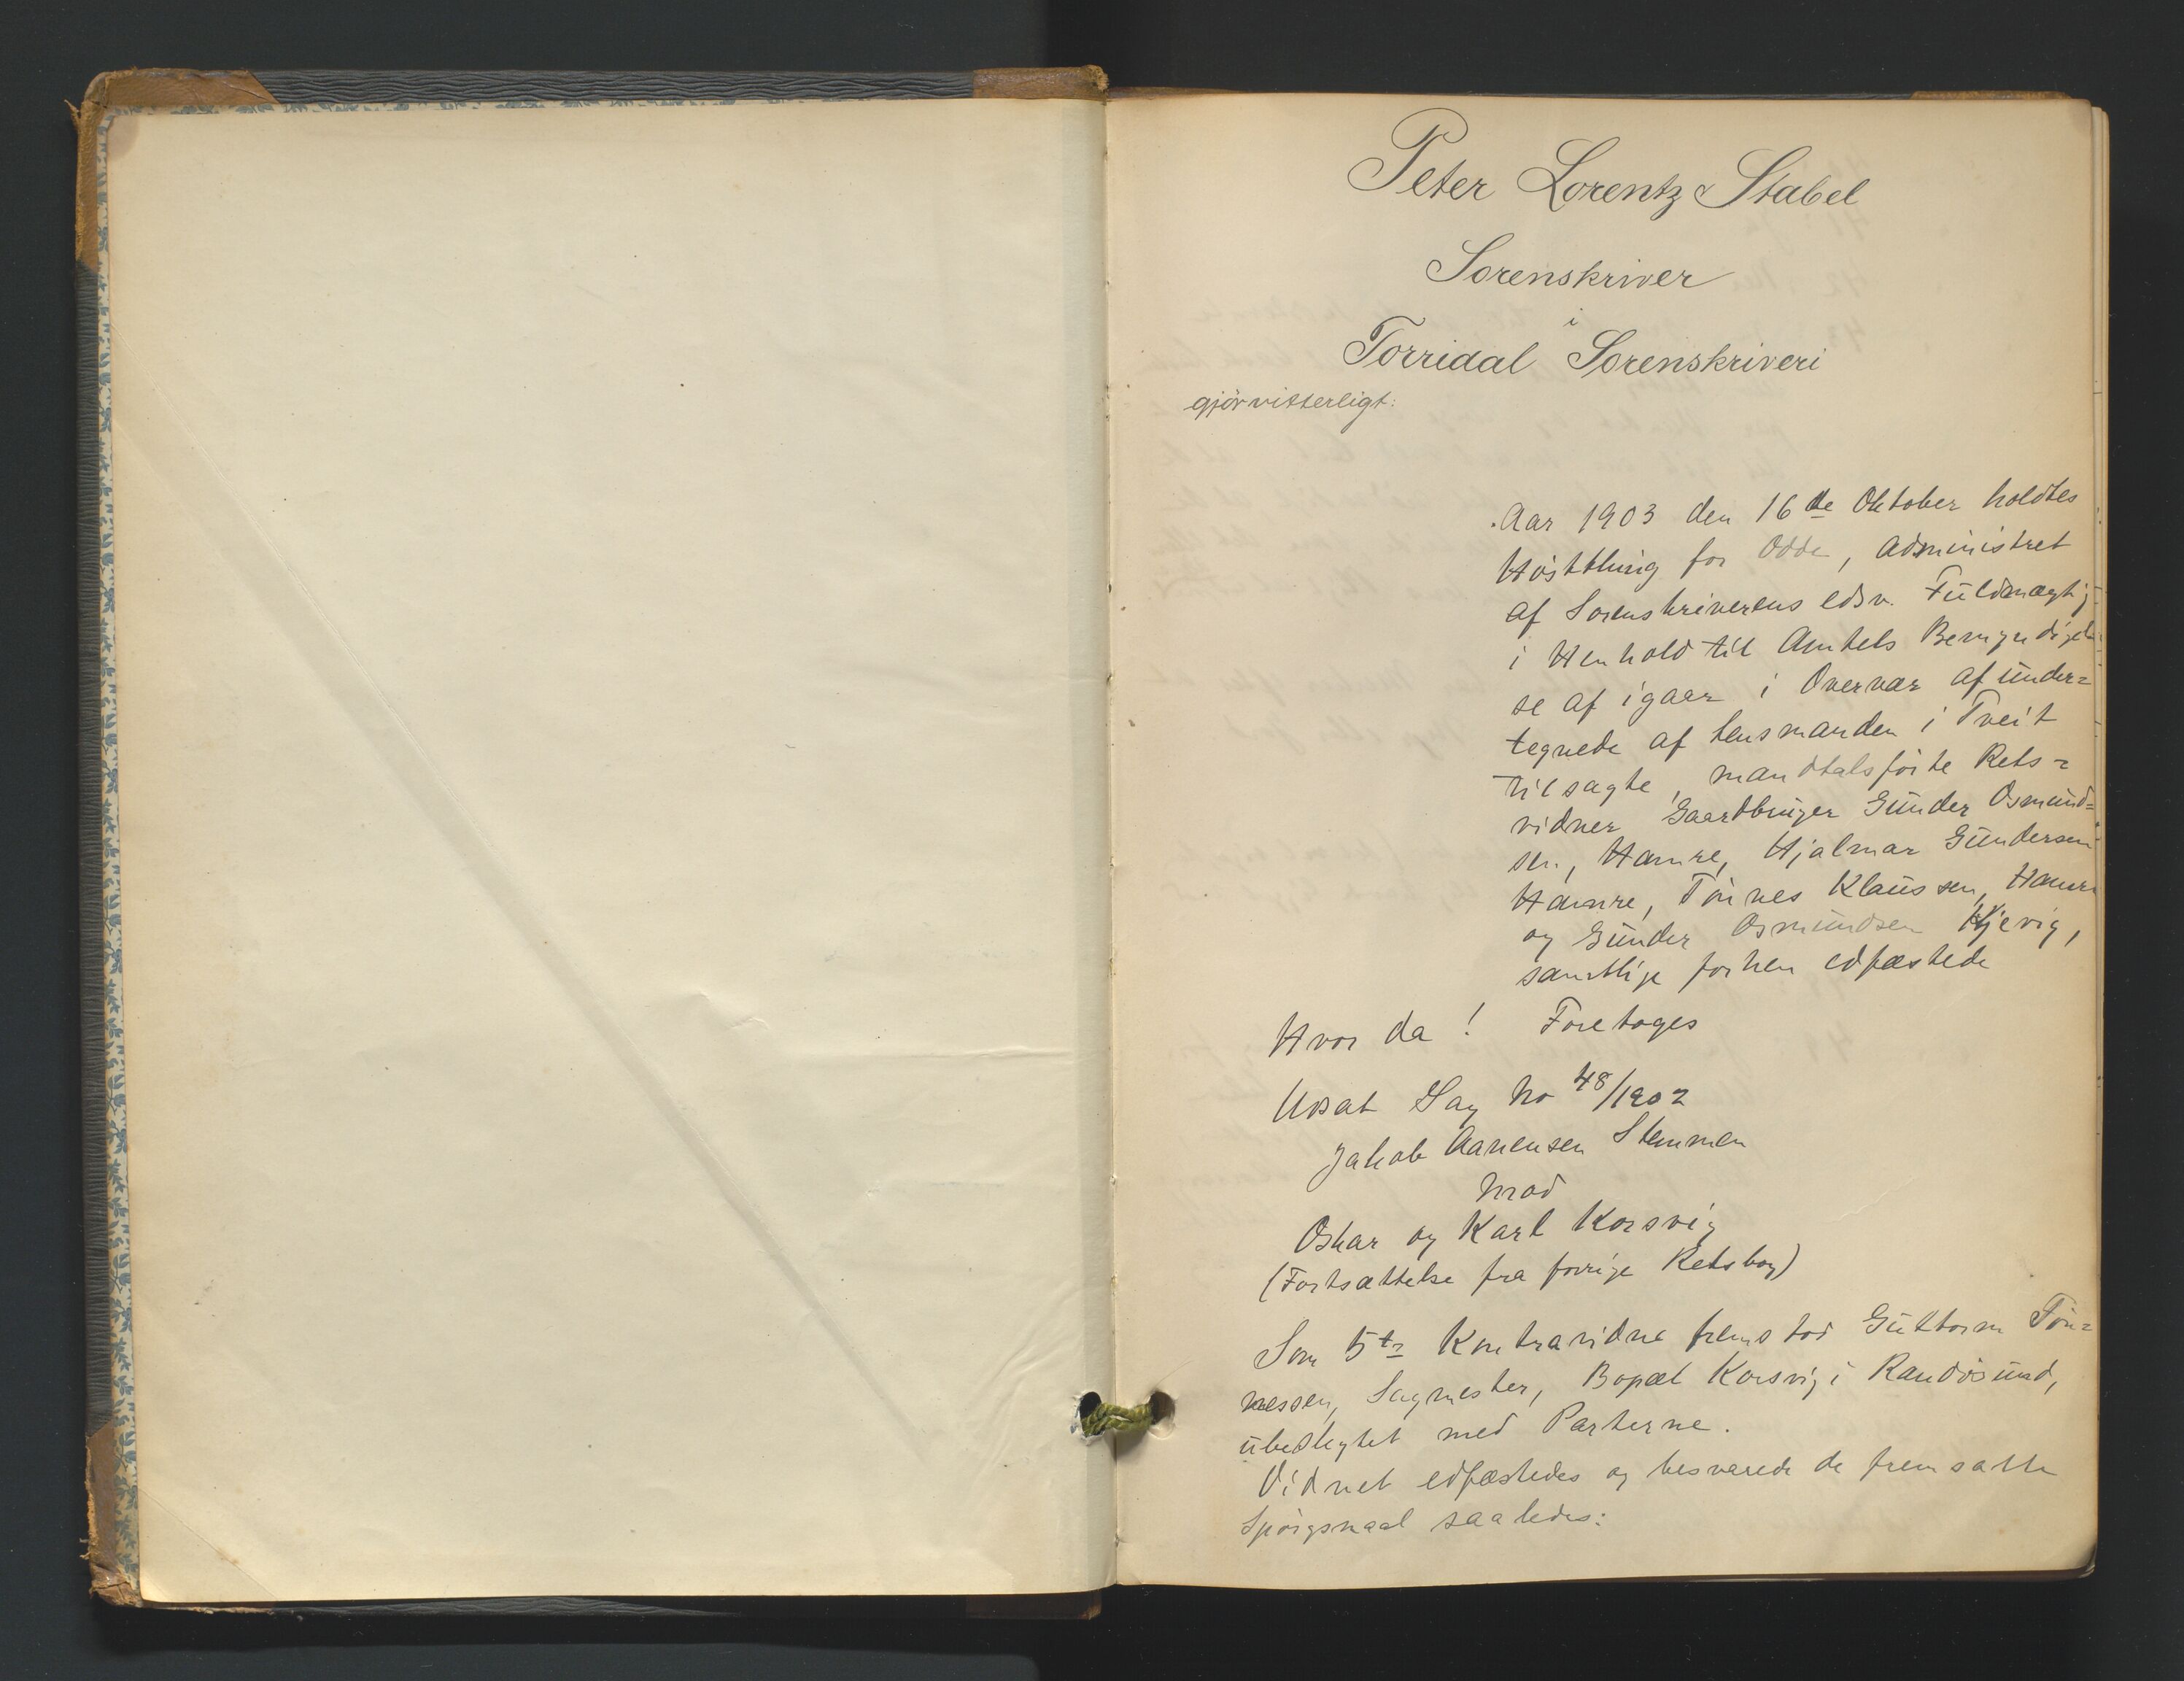 Peter Lorentz Stabel
Sorenskriver
i
Torridal Sorenskriveri
gjör vitterligt:
Aar 1903 den 16de Oktober holdtes
Höstthing for Odde, administret
af Sorenskriverens edsv. Fuldmægtig
i Henhold til Amtets Bemyndigel
se af igaar i Overvær af under=
tegnede af Lensmanden i Tveit
tilsagte, mandtalsförte Rets=
vidner Gaardbruger Gunder Osmund=
sen, Hamre, Hjalmar Gundersen
Hamre, Tönnes Klaussen, Hamre
og Gunder Osmundsen Kjevig,
samtlige forhen edfæstede
Hvor da! Foretoges
Udsat Sag No 48/1902
Jakob Aanensen Stemmen
mod
Oskar og Karl Korsvig
(Fortsættelse fra forrige Retsbog)
Som 5te Kontravidne fremstod Guttorm Tön=
nessen, Sagmester, Bopæl Korsvig i Randösund,
ubeslegtet med Parterne.
Vidnet edfæstedes og besvarede de fremsatte
Spörgsmaal saaledes: